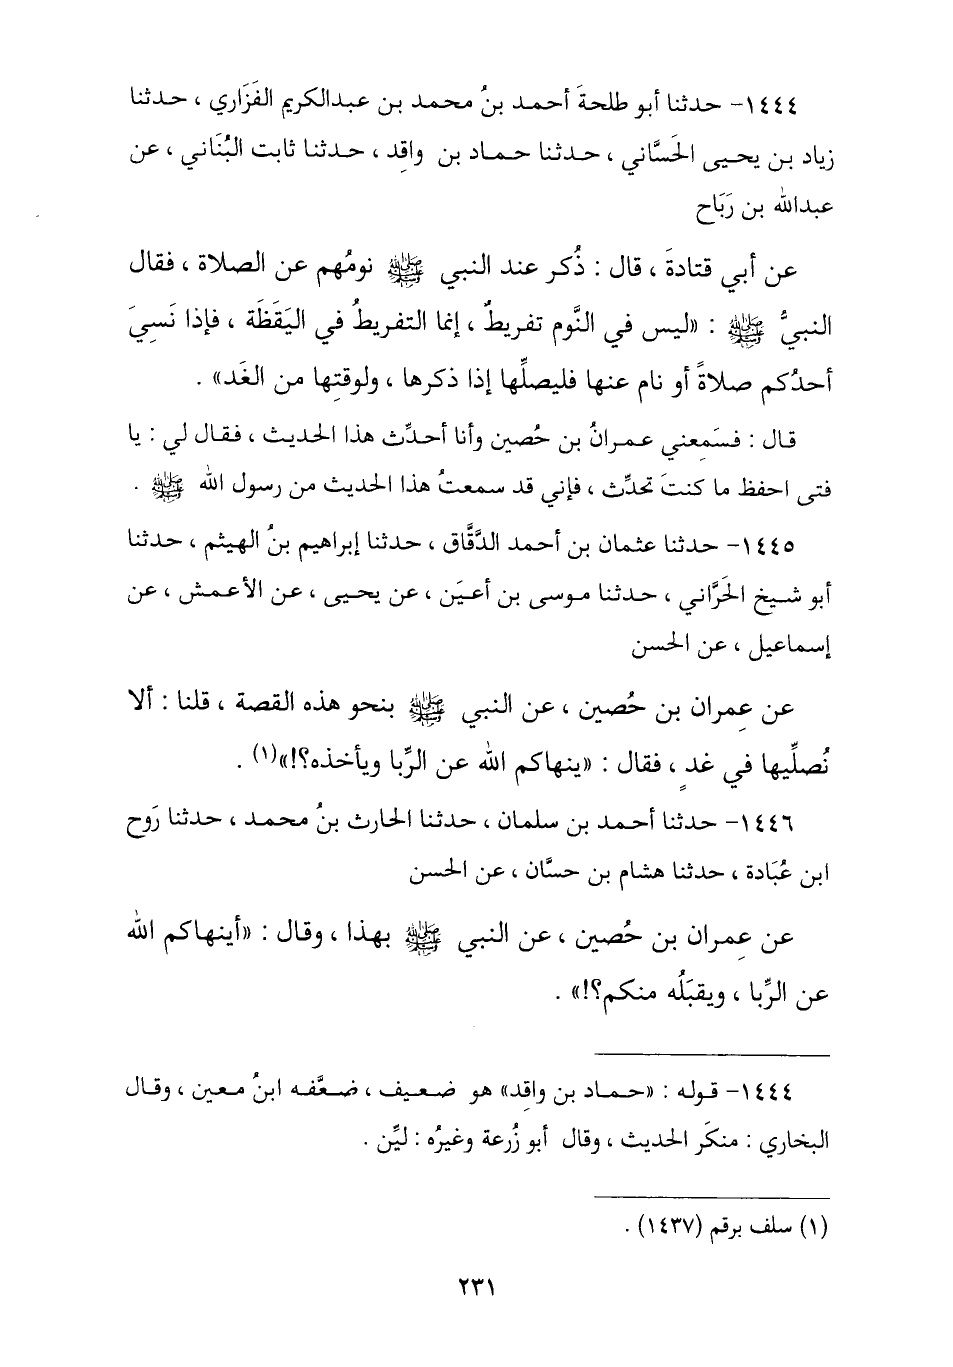 ١٤٤٤- حدثنا أبو طلحةَ أحمد بنُ محمد بن عبدالكريم الفَزَاري ، حدثنا
زياد بن يحيى الحَسَّاني ، حدثنا حماد بن واقِد ، حدثنا ثابت البُنَاني ، عن
عبدالله بن رَبَاح
عن أبي قتادةَ ، قال : ذُكر عند النبي ﷺ نومُهم عن الصلاة ، فقال
النبيُّ ﷺ : «ليس في النَّوم تفريطٌ ، إنما التفريطُ في اليَقَظَة ، فإذا نَسِيَ
أحدُكم صلاةً أو نام عنها فليصلِّها إذا ذكرها ، ولوقتِها من الغَد» .
قال : فسَمِعني عمرانُ بن حُصين وأنا أحدِّث هذا الحديث ، فقال لي : يا
فتى احفظ ما كنتَ تحدِّث ، فإني قد سمعتُ هذا الحديث من رسول الله ﷺ .
١٤٤٥- حدثنا عثمان بن أحمد الدَّقَّاق ، حدثنا إبراهيم بنُ الهيثم ، حدثنا
أبو شيخ الحَرَّاني ، حدثنا موسى بن أعيَن ، عن يحيى ، عن الأعمش ، عن
إسماعيل ، عن الحسن
عن عِمران بن حُصين ، عن النبي ﷺ بنحو هذه القصة ، قلنا : ألا
نُصلِّيها في غدٍ ، فقال : «ينهاكم الله عن الرِّبا ويأخذه؟!»(١) .
١٤٤٦- حدثنا أحمد بن سلمان ، حدثنا الحارث بنُ محمد ، حدثنا رَوح
ابن عُبَادة ، حدثنا هشام بن حسَّان ، عن الحسن
عن عِمران بن حُصين ، عن النبي ﷺ بهذا ، وقال : «أينهاكم الله
عن الرِّبا ، ويقبَلُه منكم؟!» .
١٤٤٤- قوله : «حماد بن واقِد» هو ضعيف ، ضعَّفه ابنُ معين ، وقال
البخاري : منكَر الحديث ، وقال أبو زُرعة وغيرُه : ليِّن .
(١) سلف برقم (١٤٣٧) .
٢٣١